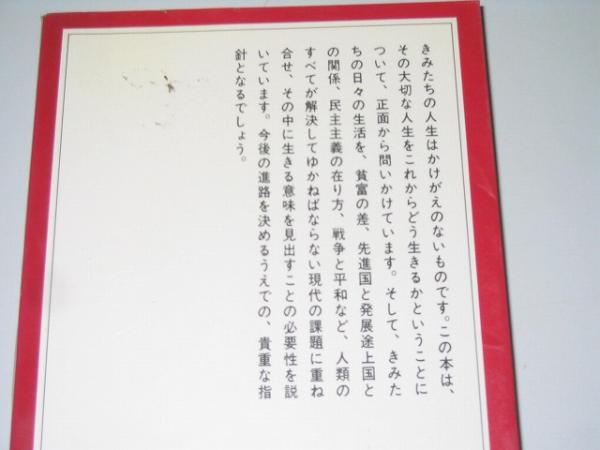 きみたちの人生はかけがえのないものです。この本は、
その大切な人生をこれからどう生きるかということに
ついて、正面から問いかけています。そして、きみた
ちの日々の生活を、貧富の差、先進国と発展途上国と
の関係、民主主義の在り方、戦争と平和など、人類の
すべてが解決してゆかねばならない現代の課題に重ね
合せ、その中に生きる意味を見出すことの必要性を説
いています。今後の進路を決めるうえでの、貴重な指
針となるでしょう。